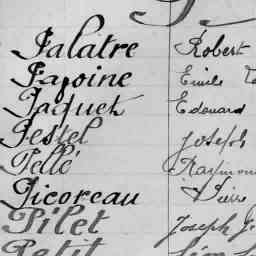 Palatre Robert
Papoine Emile
Paquet Edouard
Pestel Joseph
Pellé Raymon
Picoreau Pierre
Pilet Joseph
Petit